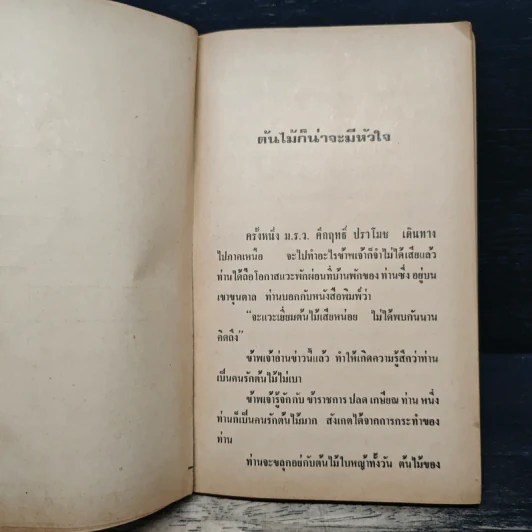 ต้นไม้ก็น่าจะมีหัวใจ
ครั้งหนึ่ง ม.ร.ว. คึกฤทธิ์ ปราโมช เดินทาง
ไปภาคเหนือ จะไปทำอะไรข้าพเจ้าก็จำไม่ได้เสียแล้ว
ท่านได้ถือโอกาสแวะพักผ่อนที่บ้านพักของ ท่านซึ่ง อยู่บน
เขาขุนตาล ท่านบอกกับหนังสือพิมพ์ว่า
“จะแวะเยี่ยมต้นไม้เสียหน่อย ไม่ได้พบกันนาน
คิดถึง”
ข้าพเจ้าอ่านข่าวนี้แล้ว ทำให้เกิดความรู้สึกว่าท่าน
เป็นคนรักต้นไม้ไม่เบา
ข้าพเจ้ารู้จักกับ ข้าราชการ ปลด เกษียณ ท่าน หนึ่ง
ท่านก็เป็นคนรักต้นไม้มาก สังเกตได้จากการกระทำของ
ท่าน
ท่านจะขลุกอยู่กับต้นไม้ใบหญ้าทั้งวัน ต้นไม้ของ